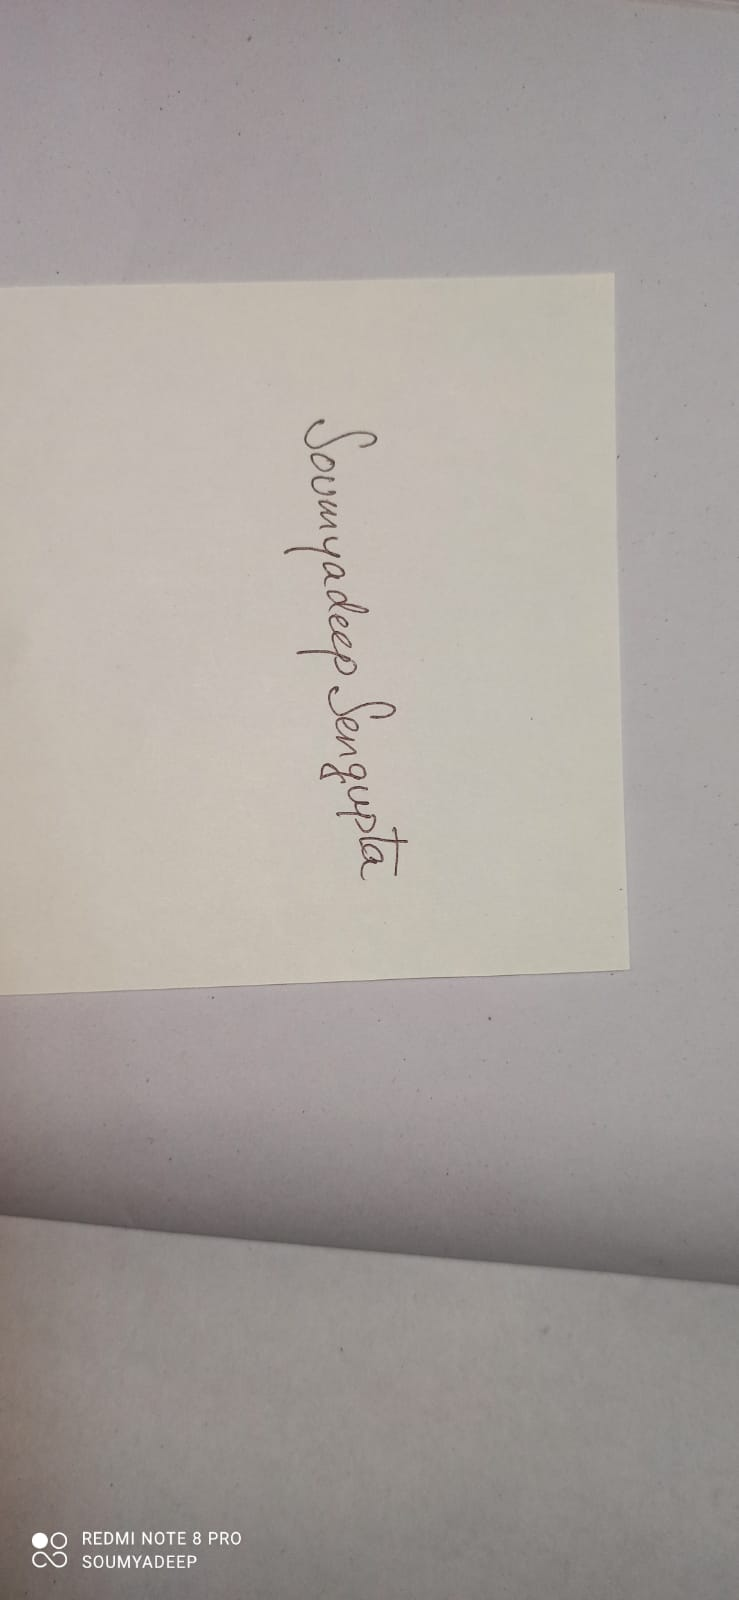 Soumyadeep Sengupta
REDMI NOTE 8 PRO
SOUMYADEEP